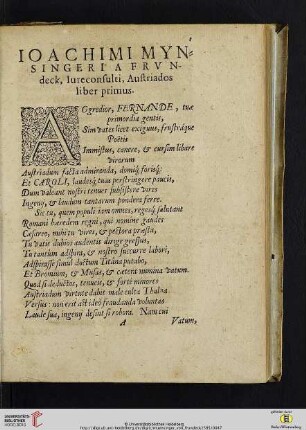 IOACHIMI MYN-
SINGERI A FRVN-
deck, Iureconsulti, Austriados
liber primus.
AGgredior, FERNANDE, tuæ
primordia gentis,
Sim vates licet exiguus, frustráque
Poëtis
Immistus, canere, & cursim libare
virorum
Austriadum facta admiranda, domíq; forísq;
Et CAROLI, laudesq́; tuas perstringere paucis,
Dum valeant nostri tenues subsistere vires
Ingenij, & laudum tantarum pondera ferre.
Sis tu, quem populi iam omnes, regesq́; salutant
Romani hæredem regni, qui nomine gaudes
Cesareo, mihi tu vires, & pectora præsta,
Tu vatis dubios audentis dirige gressus,
Tu tantùm adspira, & nostro succurre labori,
Adspirasse simul doctum Titana putabo,
Et Bromium, & Musas, & cætera numina vatum.
Quòd si deductos, tenueis, & forte minores
Austriadum virtute dabit male culta Thalia
Versus: non erit asideò fraudanda voluntas
Laude sua, ingenij desint si robora. Nam cui
A Vatum,
UNIVERSITÄTS-
BIBLIOTHEK
HEIDELBERG
© Universitätsbibliothek Heidelberg
Baden-Württemberg